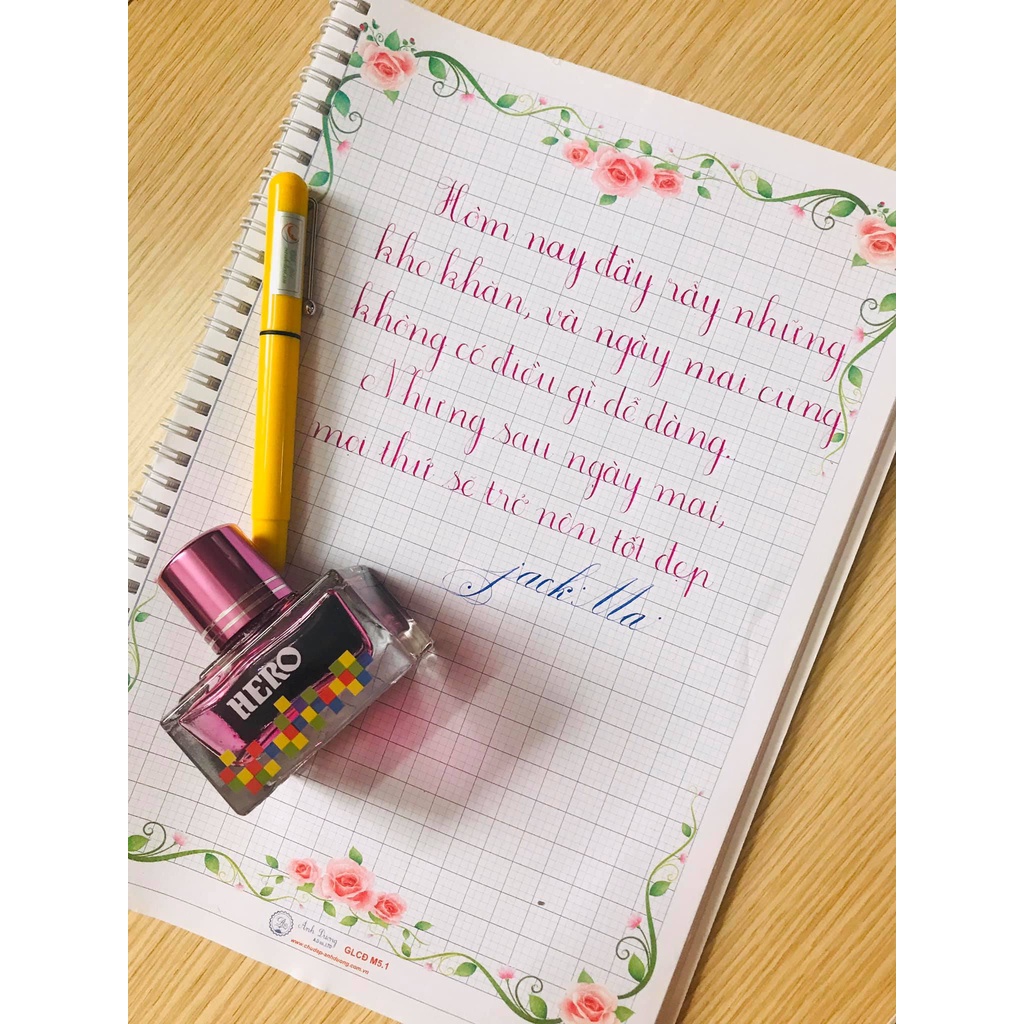 Hôm nay đầy rẫy những
khó khăn, và ngày mai cũng
không có điều gì dễ dàng.
Nhưng sau ngày mai,
mọi thứ sẽ trở nên tốt đẹp
jack Ma
HERO
Ánh Dương
GLCĐ M5.1
www.chudep-anhduong.com.vn